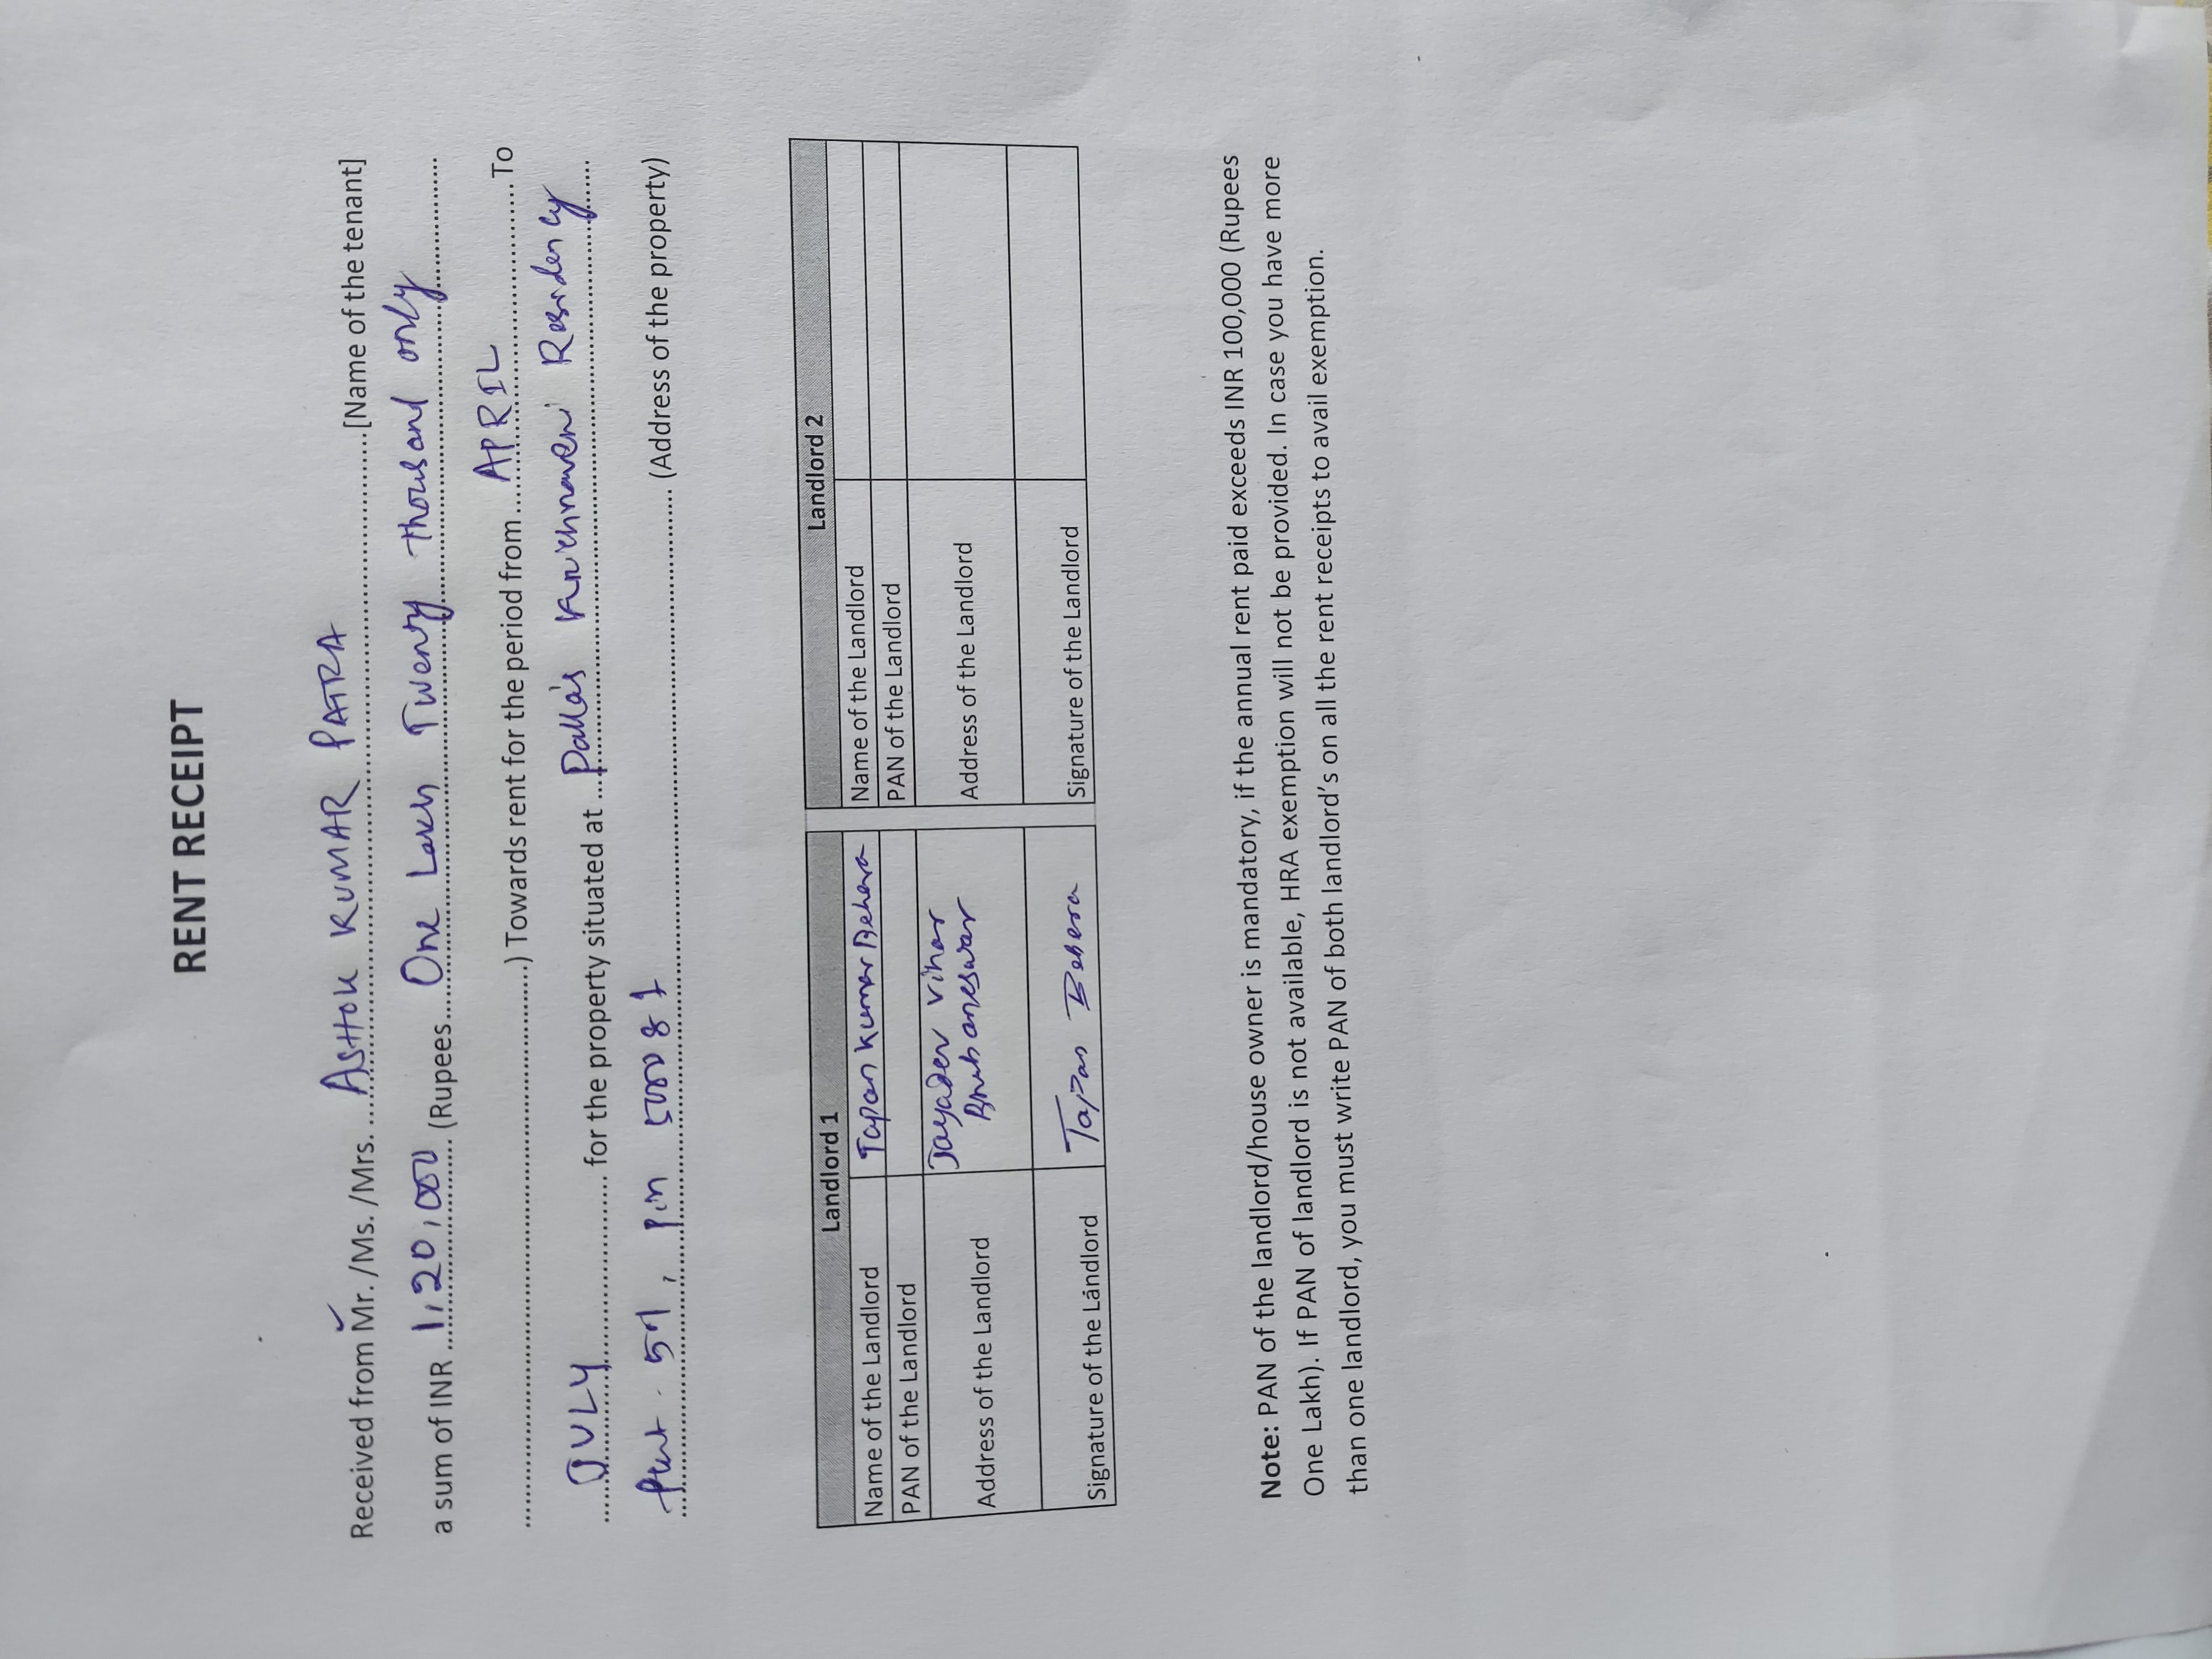 RENT RECEIPT
Received from Mr. /Ms. /Mrs. ....ASHOK KUMAR PATRA....[Name of the tenant]
a sum of INR ...1,20,000... (Rupees...One Lakh Twenty thousand only...
...) Towards rent for the period from ...APRIL... To
...JULY... for the property situated at ...Dalla's Residency
pin 500081 ... (Address of the property)
Landlord 1
Name of the Landlord Tapan Kumar Behera
PAN of the Landlord
Address of the Landlord Jayadev Vihar
Bhubaneswar
Signature of the Landlord Tapan Behera
Landlord 2
Name of the Landlord
PAN of the Landlord
Address of the Landlord
Signature of the Landlord
Note: PAN of the landlord/house owner is mandatory, if the annual rent paid exceeds INR 100,000 (Rupees
One Lakh). If PAN of landlord is not available, HRA exemption will not be provided. In case you have more
than one landlord, you must write PAN of both landlord's on all the rent receipts to avail exemption.